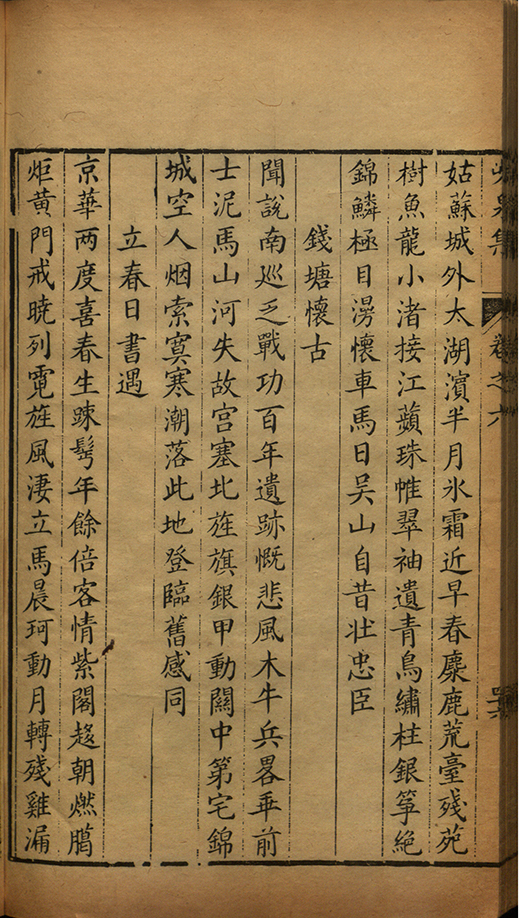 卷之六
姑蘇城外太湖濱半月氷霜近早春麋鹿荒臺殘苑
樹魚龍小渚接江蘋珠帷翠袖遺青鳥繡柱銀筝絶
錦鱗極目漫懷車馬日吳山自昔壮忠臣
錢塘懷古
聞說南巡乏戰功百年遺跡慨悲風木牛兵畧乖前
士泥馬山河失故宫塞北旌旗銀甲動關中第宅錦
城空人烟索寞寒潮落此地登臨舊感同
立春日書遇
京華两度喜春生踈髩年餘倍客情紫閣趍朝燃臈
炬黄門戒曉列霓旌風淒立馬晨珂動月轉殘雞漏